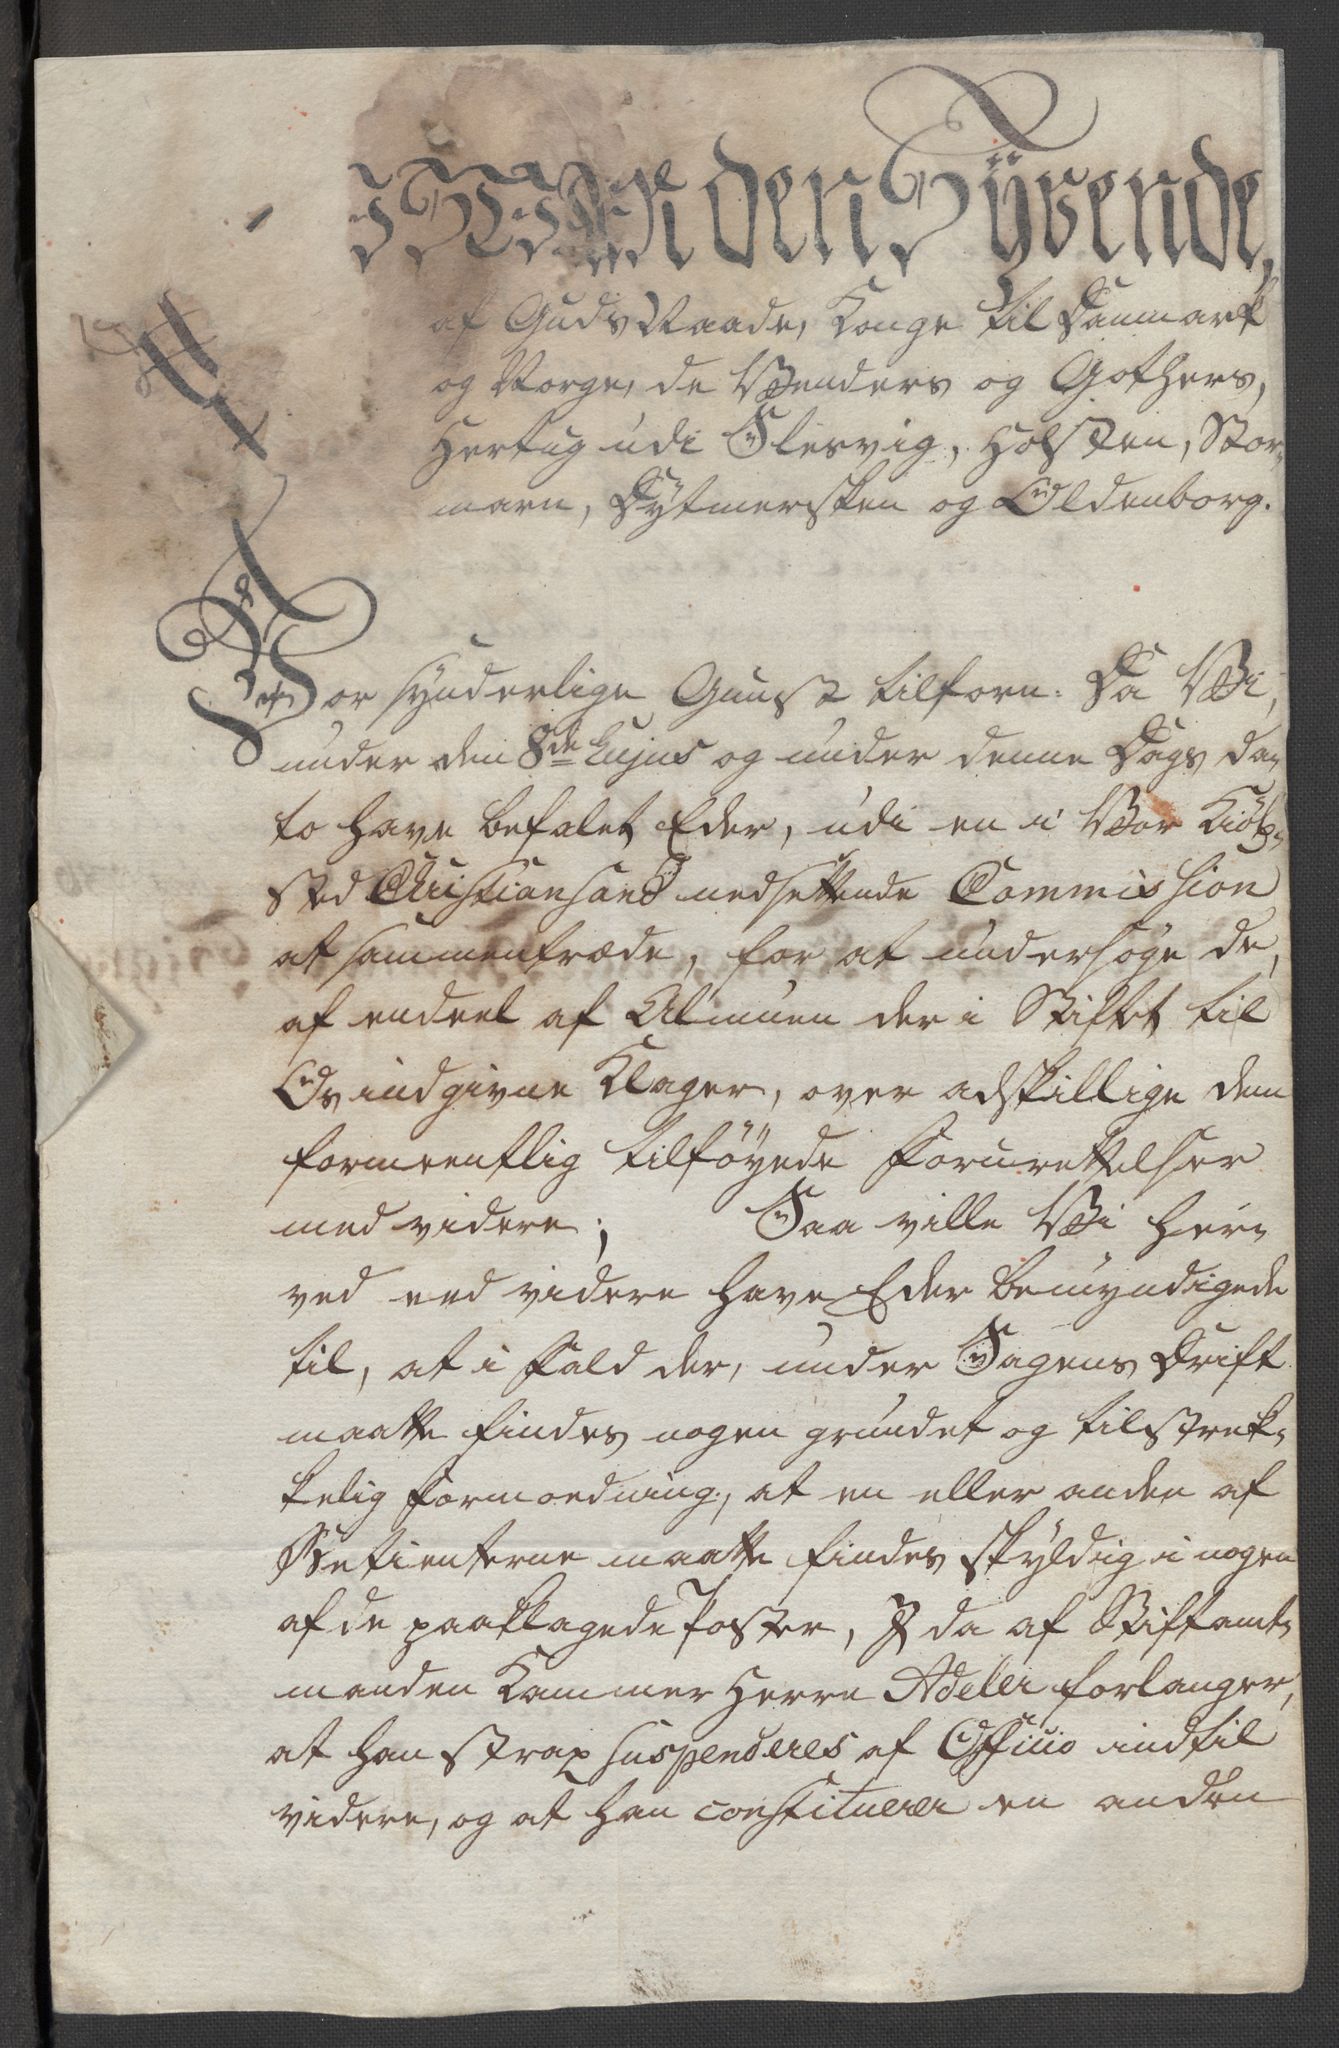 den Syvende,
af Guds Naade, Konge til Danmark
og Norge, de Wenders og Gothers,
Hertug udi Slesvig, Holsten, Stor-
marn, Dytmersken og Oldenborg.
Vor synderlige Gunst tilforn. Da Wi,
under den 8de hujus og under denne Dags da-
to have befalet Eder, udi en i Vor Kiöb-
sted Christiansand nedsettende Commission
at sammentræde, for at undersöge de,
af endeel af Almuen der i Stiftet til
Os indgivne Klager, over adskillige dem
formeentlig tilföyede Forurettelser
med videre; Saa ville Wi her-
ved end videre have Eder bemyndigede
til, at i Fald der, under Sagens Drift
maatte findes nogen grundet og tilstrek-
kelig Formodning, at en eller anden af
Betienterne maatte findes skyldig i nogen
af de paaklagede Poster, I da af Stiftamt-
manden Kammer Herre Adeler forlanger,
at han strax suspenderes af Officio indtil
videre, og at han constituerer en anden